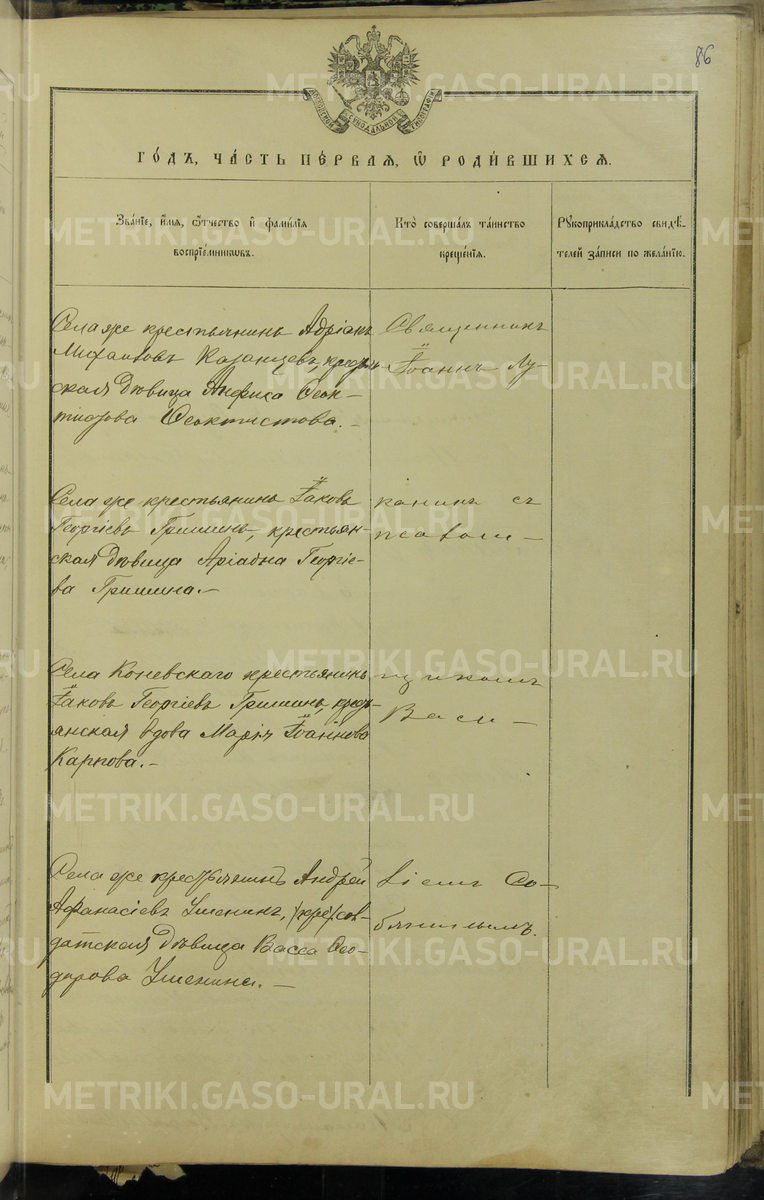 86
МОСКОВСКОЙ СѴНОДАЛЬНОЙ ТИПОГРАФІИ
ГО́ДЪ, ЧА́СТЬ ПЕ́РВАЯ, Ѡ҆ РОДИ́ВШИХСЯ.
Зва́нїе, и҆́мя, ѻ҆́тчество и҆ фами́лїя
воспрїе́мниковъ.
Кто̀ соверша́лъ та́инство
креще́нїя.
Рꙋкоприкла́дство свидѣ́-
телей за́писи по жела́нїю.
Села же крестьянинъ Адріанъ
Михаиловъ Казанцевъ, кресть-
янская дѣвица Анфиса Ѳеок-
тистова Ѳеоктистова.-
Священникъ
Іоаннъ Лу-
Села же крестьянинъ Іаковъ
Георгіевъ Гришинъ, крестьян-
ская дѣвица Аріадна Георгіе-
ва Гришина.-
канинъ съ
псалом-
Села Коневскаго крестьянинъ
Іаковъ Георгіевъ Гришинъ, кресть-
янская вдова Марія Іоаннова
Карпова.-
щикомъ
Васи-
Села же крестьянинъ Андрей
Аѳанасіевъ Ушенинъ, (кре) сол-
датская дѣвица Васса Ѳео-
дорова Ушенина.-
ліемъ Со-
бянинымъ.
METRIKI.GASO-URAL.RU